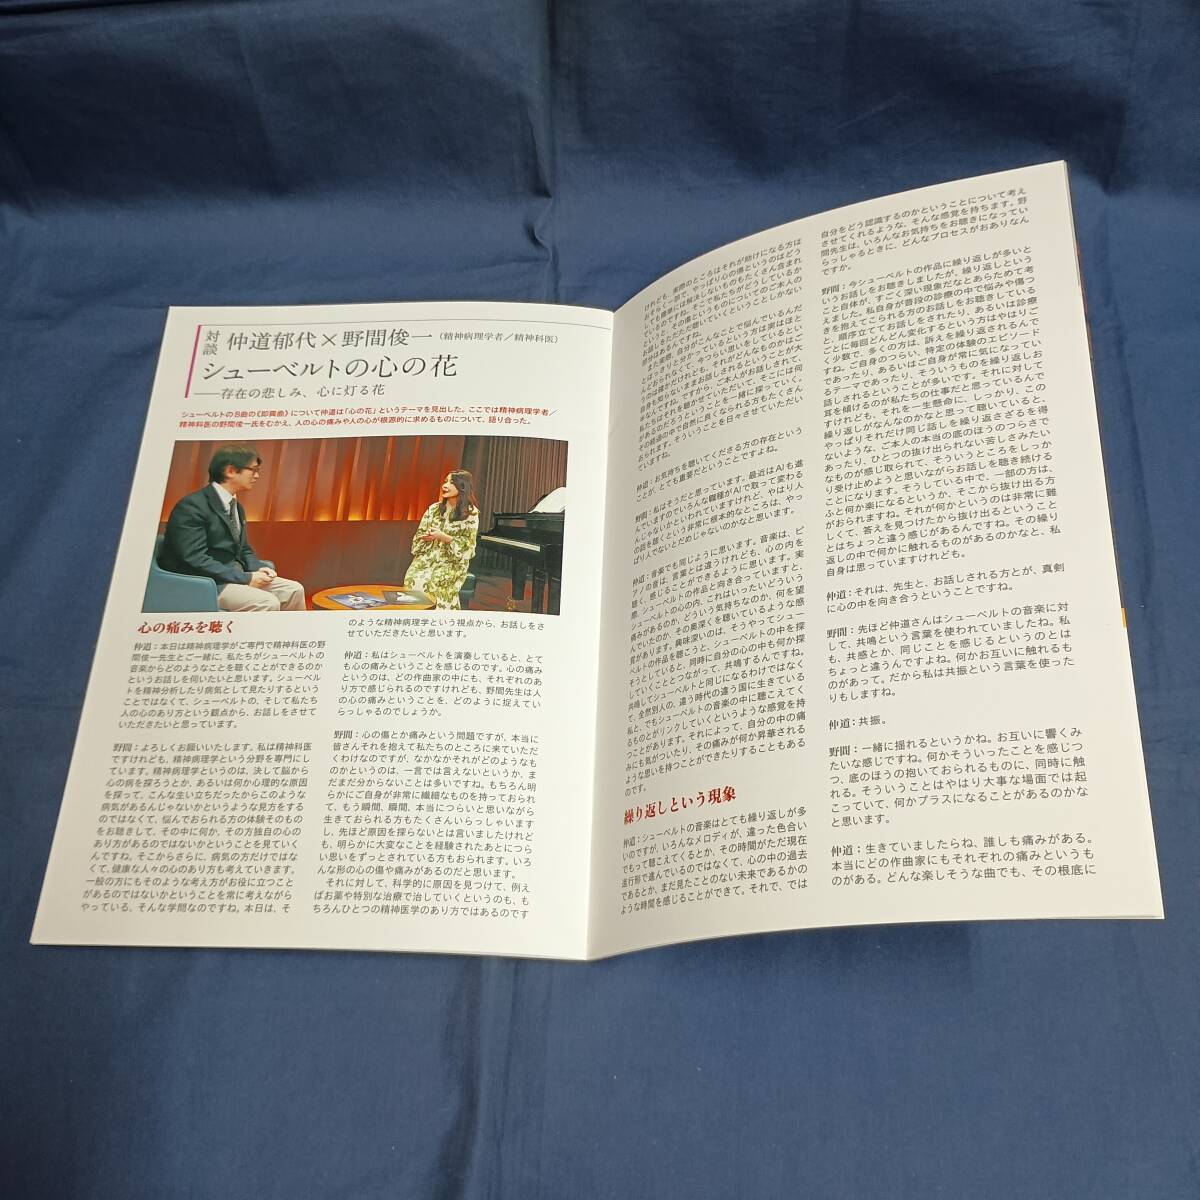 対談 仲道郁代×野間俊一（精神病理学者／精神科医）
シューベルトの心の花
――存在の悲しみ、心に灯る花
シューベルトの8曲の《即興曲》について仲道は「心の花」というテーマを見出した。ここでは精神病理学者／
精神科医の野間俊一氏をむかえ、人の心の痛みや人の心が根源的に求めるものについて、語り合った。
心の痛みを聴く
仲道：本日は精神病理学がご専門で精神科医の野
間俊一先生とご一緒に、私たちがシューベルトの
音楽からどのようなことを聴くことができるのか
というお話を伺いたいと思います。シューベル
トを精神分析したり病気として見たりするという
ことではなくて、シューベルトの、そして私たち
人の心のあり方という観点から、お話をさせて
いただきたいと思っています。
野間：よろしくお願いいたします。私は精神科医
ですけれども、精神病理学という分野を専門にし
ています。精神病理学というのは、決して脳から
心の病を探ろうとか、あるいは何か心理的な原因
を探って、こんな生い立ちだったからこのような
病気があるんじゃないかというような見方をする
のではなくて、悩んでおられる方の体験そのもの
をお聴きして、その中に何か、その方独自の心の
あり方があるのではないかということを見ていく
んですね。そこからさらに、病気の方だけではな
くて、健康な人々の心のあり方も考えていきます。
一般の方にもそのような考え方がお役に立つこと
があるのではないかということを常に考えながら
やっている、そんな学問なのですね。本日は、そ
のような精神病理学という視点から、お話をさ
せていただきたいと思います。
仲道：私はシューベルトを演奏していると、とて
も心の痛みということを感じるのです。心の痛み
というのは、どの作曲家の中にも、それぞれのあ
り方で感じられるのですけれども、野間先生は人
の心の痛みということを、どのように捉えてい
らっしゃるのでしょうか。
野間：心の傷とか痛みという問題ですが、本当に
皆さんそれを抱えて私たちのところに来ていただ
くわけなのですが、なかなかそれがどのようなも
のかというのは、一言では言えないというか、ま
だまだ分からないことは多いですね。もちろん明
らかにご自身が非常に繊細なものを持っておられ
て、もう瞬間、瞬間、本当につらいと思いながら
生きておられる方もたくさんいらっしゃいます
し、先ほど原因を探らないとは言いましたけれど
も、明らかに大変なことを経験されたあとにつら
い思いをずっとされている方もおられます。いろ
んな形の心の傷や痛みがあるのだと思います。
それに対して、科学的に原因を見つけて、例え
ばお薬や特別な治療で治していくというのも、も
ちろんひとつの精神医学のあり方ではあるのです
けれども、実際のところはそれが助けになる方は
仲道：お気持ちを聴いてくださる方の存在という
ことが、とても重要だということですよね。
野間：私はそうだと思っています。最近はAIも進
んでいますのでいろんな職種がAIで取って変わる
んじゃないかといわれていますけれど、やはり人
の話を聴くという非常に根本的なところは、やっ
ぱり人でないとだめじゃないのかなと思います。
仲道：音楽でも同じように思います。音楽は、ピ
アノの音は、言葉とは違うけれども、心の内を
聴く、感じることができるように思います。実
際、シューベルトの作品と向き合っていますと、
シューベルトの心の内、これはいったいどういう
痛みがあるのか、どういう気持ちなのか、何を望
んでいたのか、その奥深くを聴いているような感
覚があります。興味深いのは、そうやってシュー
ベルトの作品を聴こうと、シューベルトの中を探
そうとしていると、同時に自分の心の中も何か探
していくことにつながって、共鳴するんですね。
共鳴してシューベルトと同じになるわけではなく
て、全然別人の、違う時代の違う国に生きている
私と、でもシューベルトの音楽の中に聴こえてく
るものとがリンクしていくというような感覚を持
つことがあります。それによって、自分の中の痛
みにも気がついたり、その痛みが何か昇華される
ような思いを持つことができたりすることもある
のです。
繰り返しという現象
仲道：シューベルトの音楽はとても繰り返しが多
いのですが、いろんなメロディが、違った色合い
でもって聴こえてくるとか、その時間がただ現在
進行形で進んでいるのではなくて、心の中の過去
であるとか、まだ見たことのない未来であるかの
ような時間を感じることができて。それで、では
自分をどう認識するのかということについて考え
させてくれるような、そんな感覚を持ちます。野
間先生は、いろんなお気持ちをお聴きになってい
らっしゃるときに、どんなプロセスがおありなん
ですか。
野間：今シューベルトの作品に繰り返しが多いと
いうお話をお聴きしましたが、繰り返しという
こと自体が、すごく深い現象だなとあらためて考
えました。私自身が普段の診療の中で悩みや傷つ
きを抱えてこられる方のお話をお聴きしている
と、順序立ててお話しをされたり、あるいは診療
ごとに毎回どんどん変化するという方はやはりご
く少数で、多くの方は、訴えを繰り返されるんで
すね。ご自身のつらい、特定の体験のエピソード
であったり、あるいはご自身が常に気になってい
るテーマであったり、そういうものを繰り返しお
話しされるということが多いです。それに対して
耳を傾けるのが私たちの仕事だと思っているんで
すけれども、それを一生懸命に、しっかり、この
繰り返しがなんなのかなと思って聴いていると、
やっぱりそれだけ同じ話しを繰り返さざるを得
ないような、ご本人の本当の底のほうのつらさで
あったり、ひとつの抜け出られない苦しさみたい
なものが感じ取られて、そういうところをしっか
り受け止めようと思いながらお話しを聴き続ける
ことになります。そうしている中で、一部の方は、
ふと何か楽になるというか、そこから抜け出る方
がおられますね。それが何かというのは非常に難
しくて、答えを見つけたから抜け出るということ
とはちょっと違う感じがあるんですね。その繰り
返しの中で何かに触れるものがあるのかなと、私
自身は思っていますけれども。
仲道：それは、先生と、お話しされる方とが、真剣
に心の中を向き合うということですね。
野間：先ほど仲道さんはシューベルトの音楽に対
して、共鳴という言葉を使われていましたね。私
も、共感とか、同じことを感じるというのとは
ちょっと違うんですよね。何かお互いに触れるも
のがあって。だから私は共振という言葉を使った
りもしますね。
仲道：共振。
野間：一緒に揺れるというかね。お互いに響くみ
たいな感じですね。何かそういったことを感じつ
つ、底のほうの抱いておられるものに、同時に触
れる。そういうことはやはり大事な場面では起
こっていて、何かプラスになることがあるのかな
と思います。
仲道：生きていましたらね、誰しも痛みがある。
本当にどの作曲家にもそれぞれの痛みというも
のがある。どんな楽しそうな曲でも、その根底に